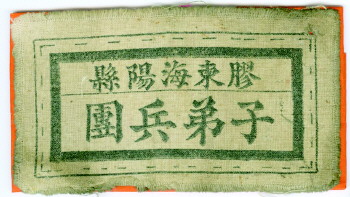 膠東海陽縣
子弟兵團